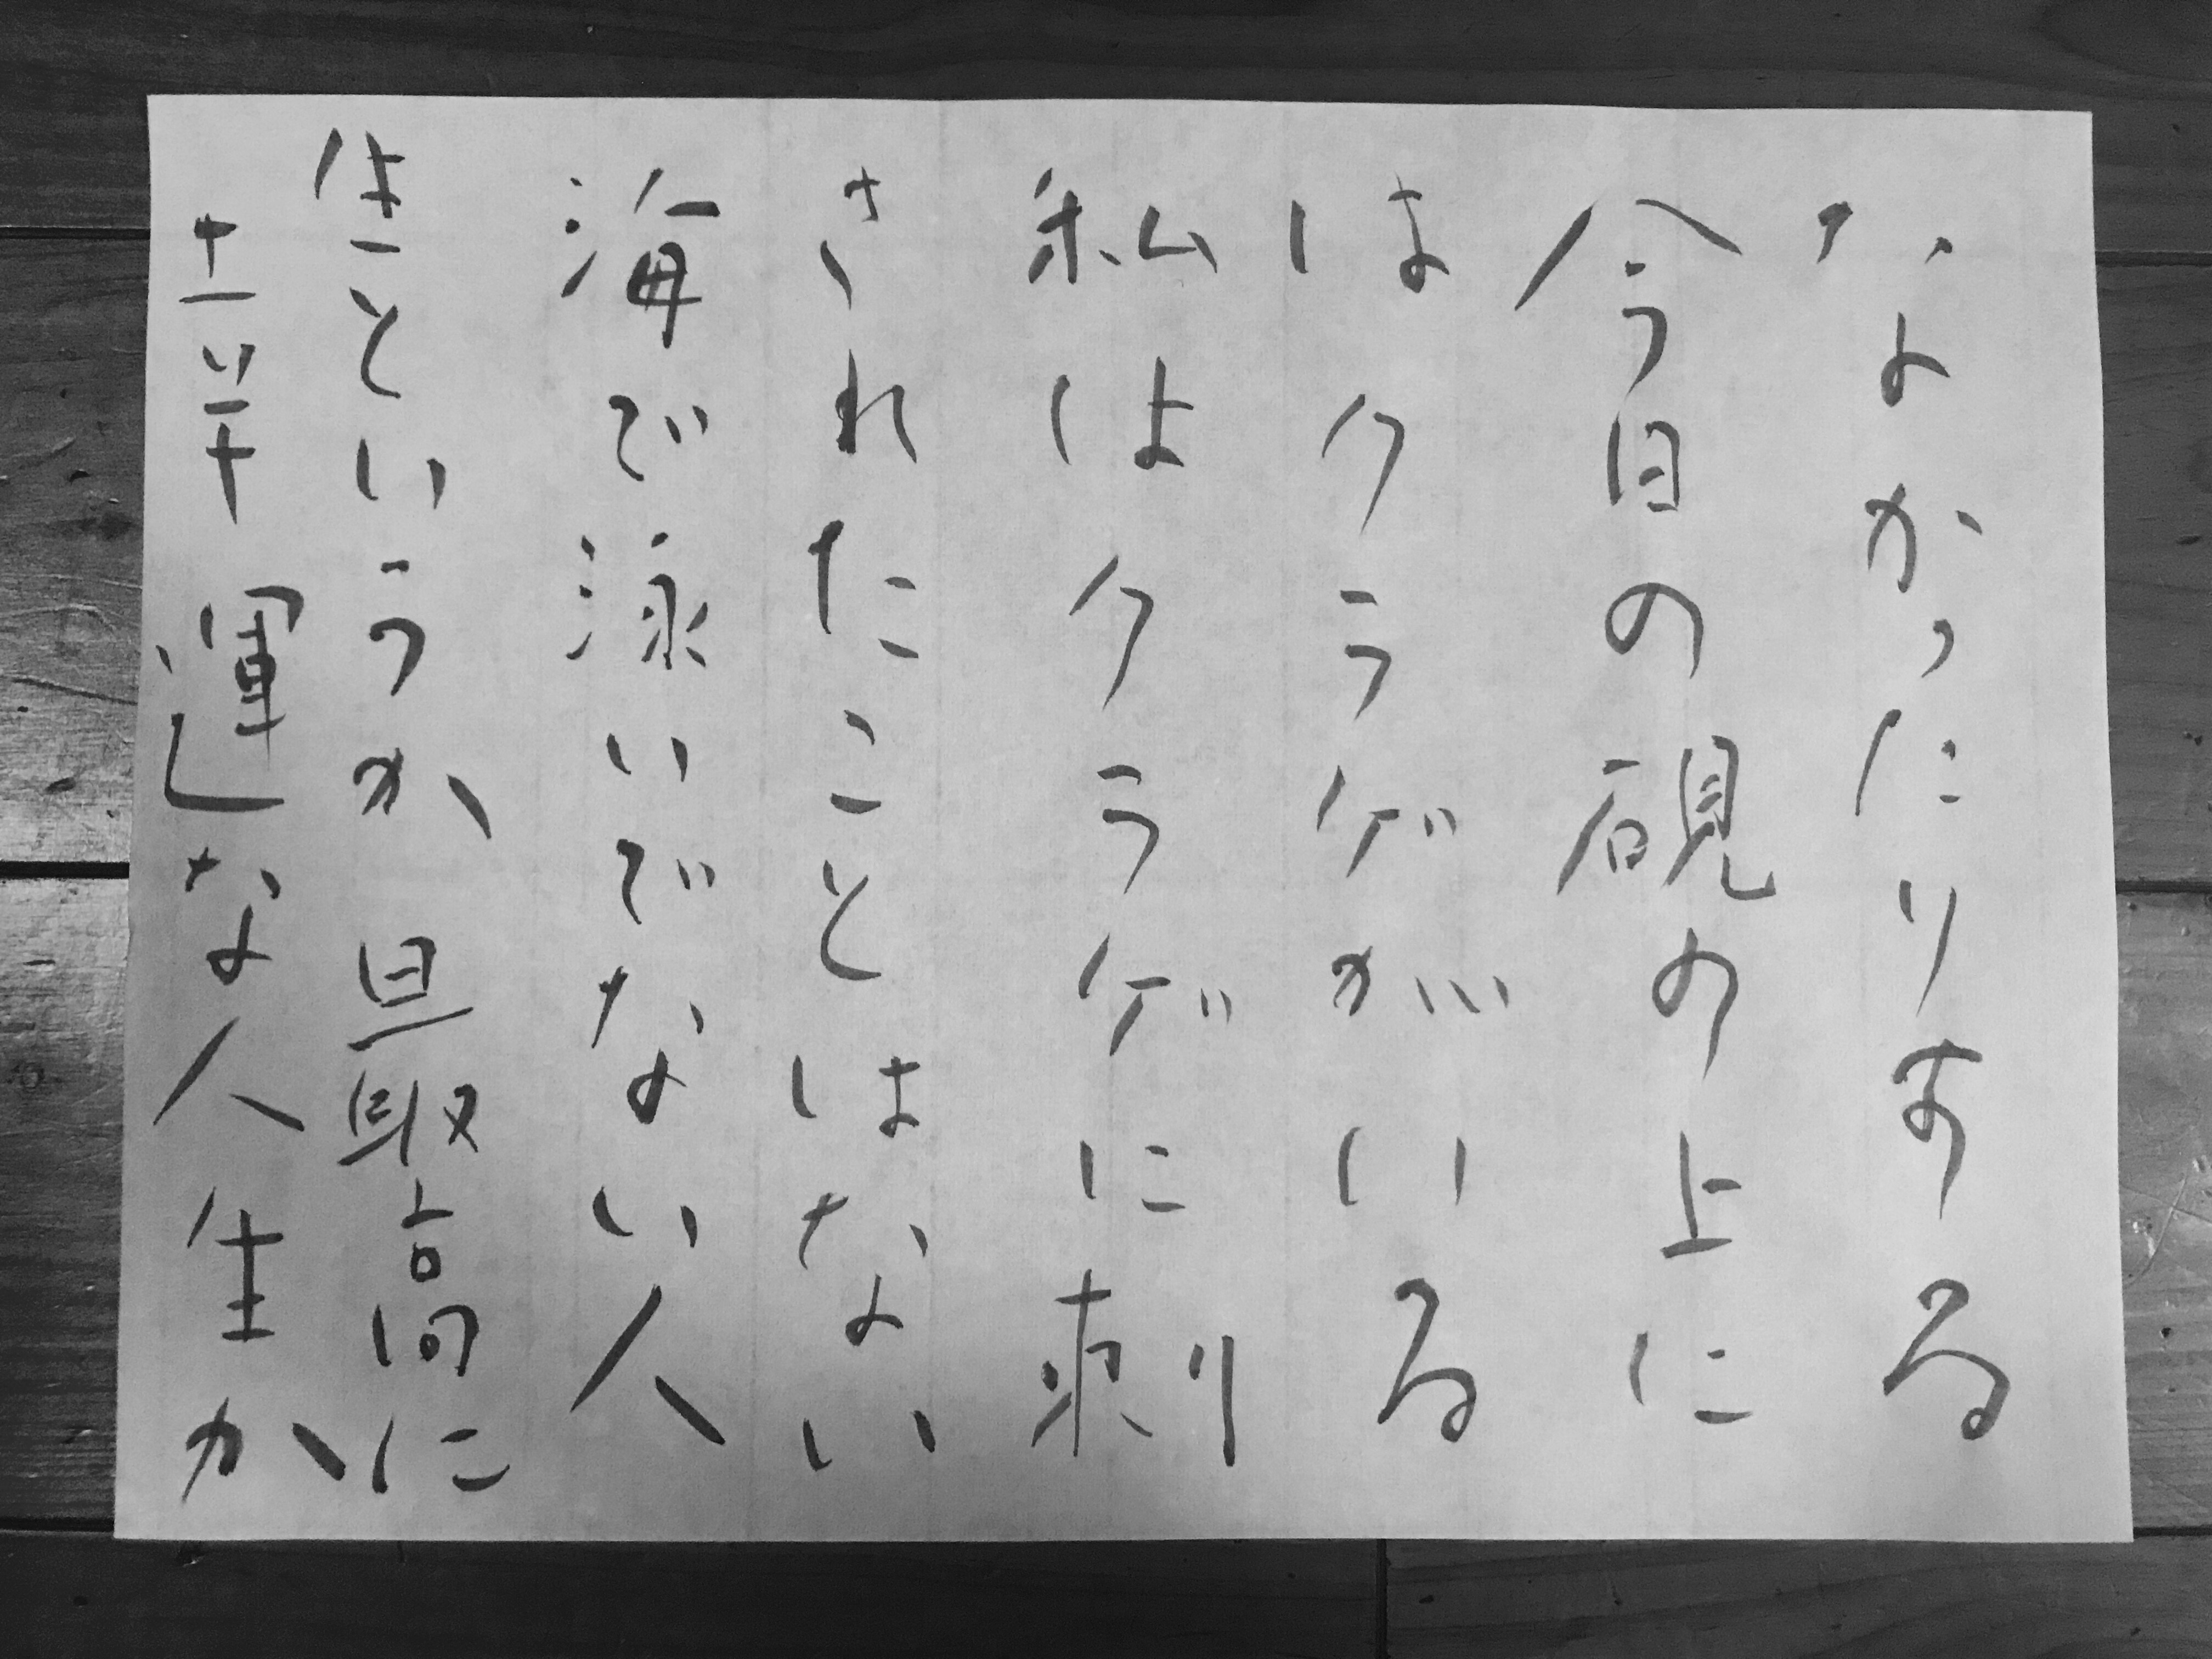 なかったりする
今日の硯の上に
はクラゲがいる
私はクラゲに刺
されたことはない
海で泳いでない人
生というか最高に
幸運な人生か